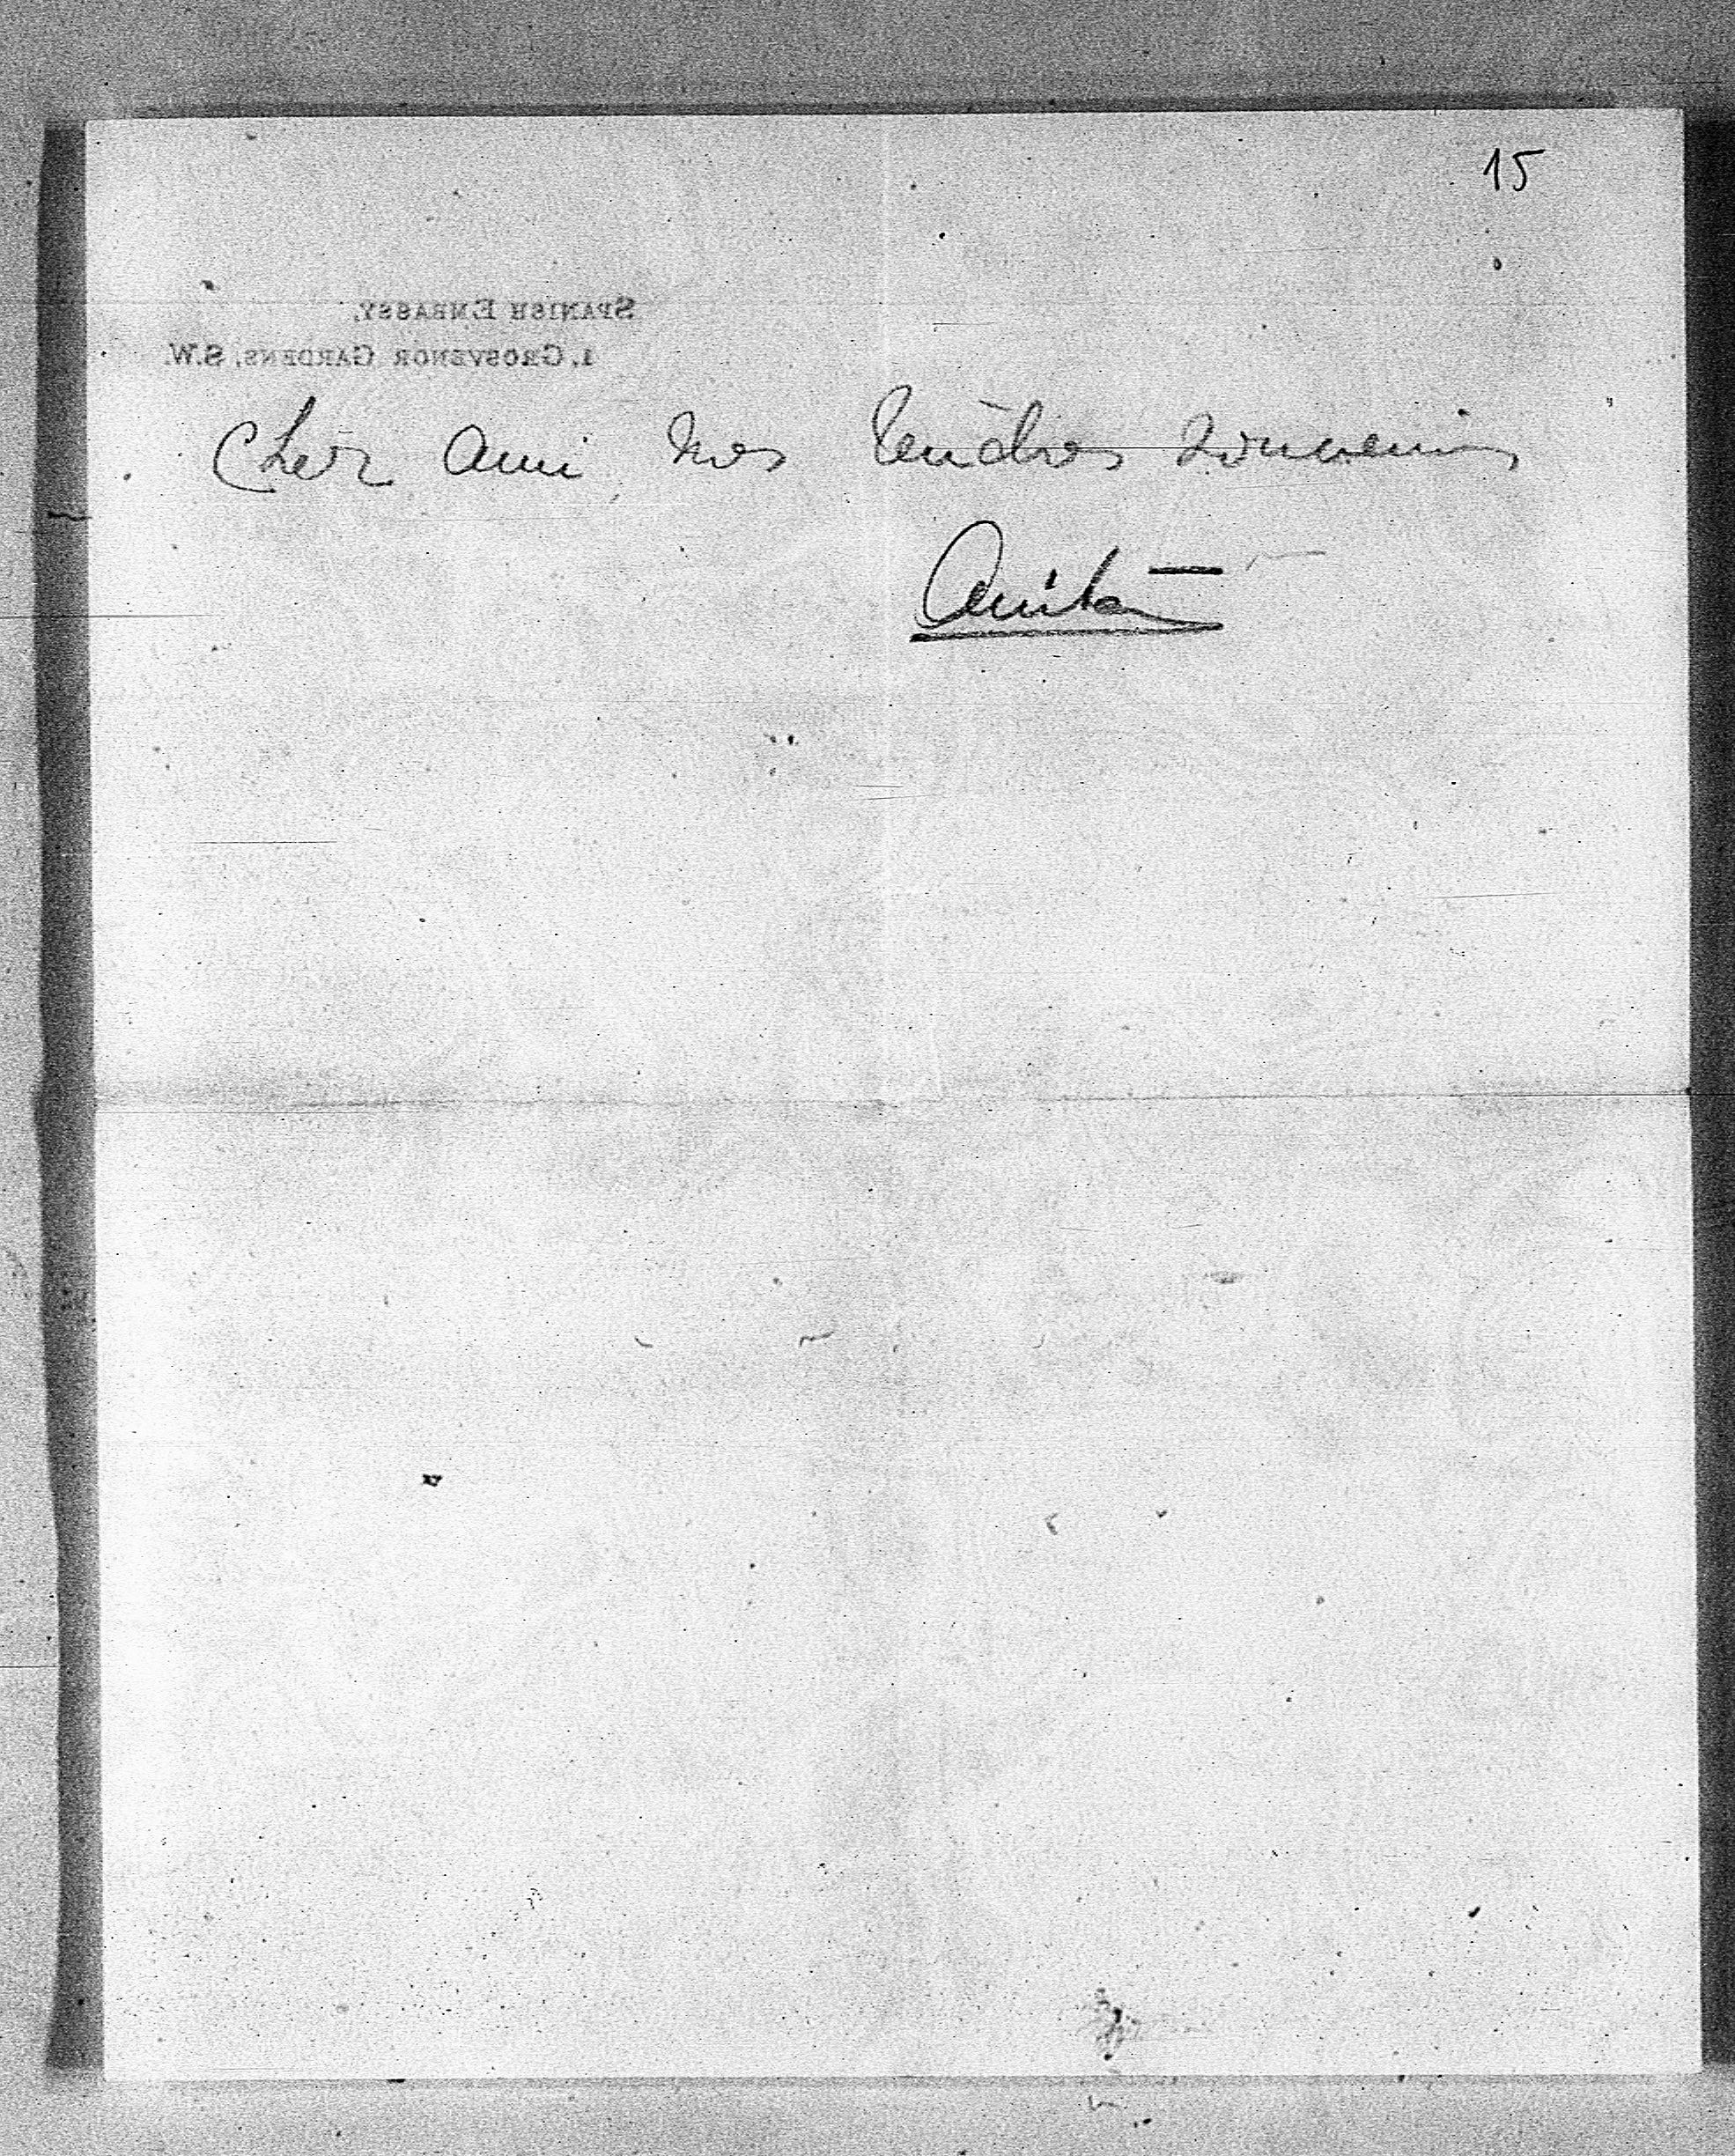 15
SPANISH EMBASSY,
1, GROSVENOR GARDENS, S.W.
Cher Ami, mes tendres souvenirs
Anita